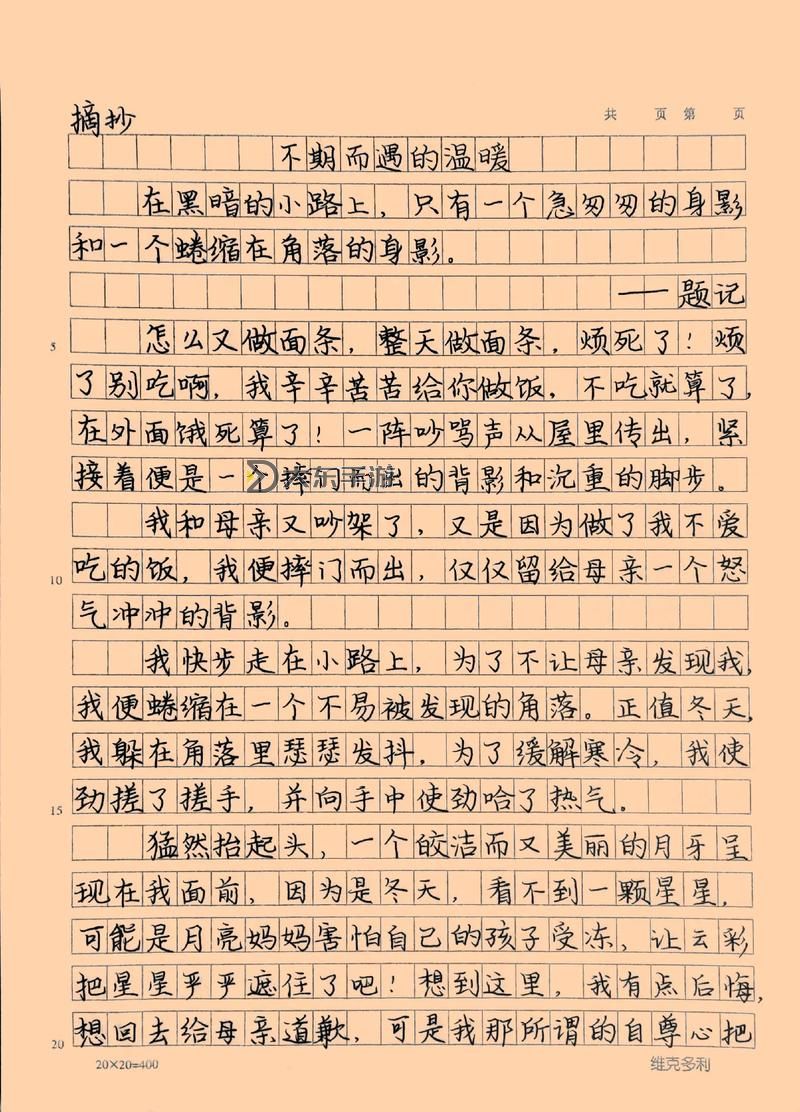 共 页 第 页
摘抄
不期而遇的温暖
在黑暗的小路上，只有一个急匆匆的身影
和一个蜷缩在角落的身影。
——题记
5
怎么又做面条，整天做面条，烦死了！烦
了别吃啊，我辛辛苦苦给你做饭，不吃就算了，
在外面饿死算了！一阵吵骂声从屋里传出，紧
接着便是一个摔门而出的背影和沉重的脚步。
大东手游
我和母亲又吵架了，又是因为做了我不爱
10
吃的饭，我便摔门而出，仅仅留给母亲一个怒
气冲冲的背影。
我快步走在小路上，为了不让母亲发现我，
我便蜷缩在一个不易被发现的角落。正值冬天，
我躲在角落里瑟瑟发抖，为了缓解寒冷，我使
15
劲搓了搓手，并向手中使劲哈了热气。
猛然抬起头，一个皎洁而又美丽的月牙呈
现在我面前，因为是冬天，看不到一颗星星，
可能是月亮妈妈害怕自己的孩子受冻，让云彩
把星星乎乎遮住了吧！想到这里，我有点后悔，
20
想回去给母亲道歉，可是我那所谓的自尊心把
20×20=400
维克多利